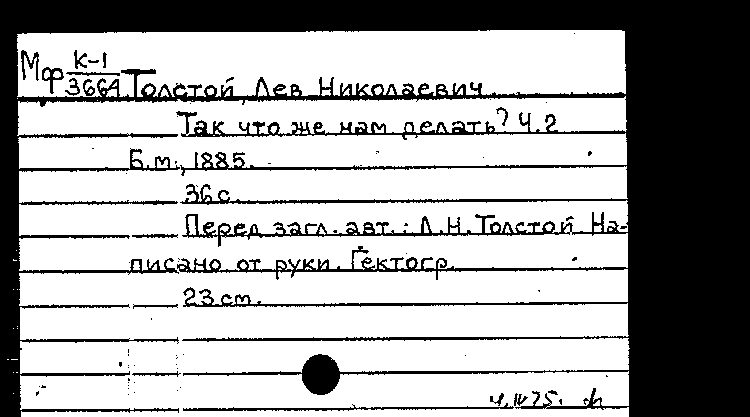 Мф К-1
3664 Толстой, Лев Николаевич.
Так что же нам делать? Ч.2
Б.м., 1885.
36 с.
Перед загл. авт.: Л.Н.Толстой На-
писано от руки. Гектогр.
23 см.
4.IV 75.